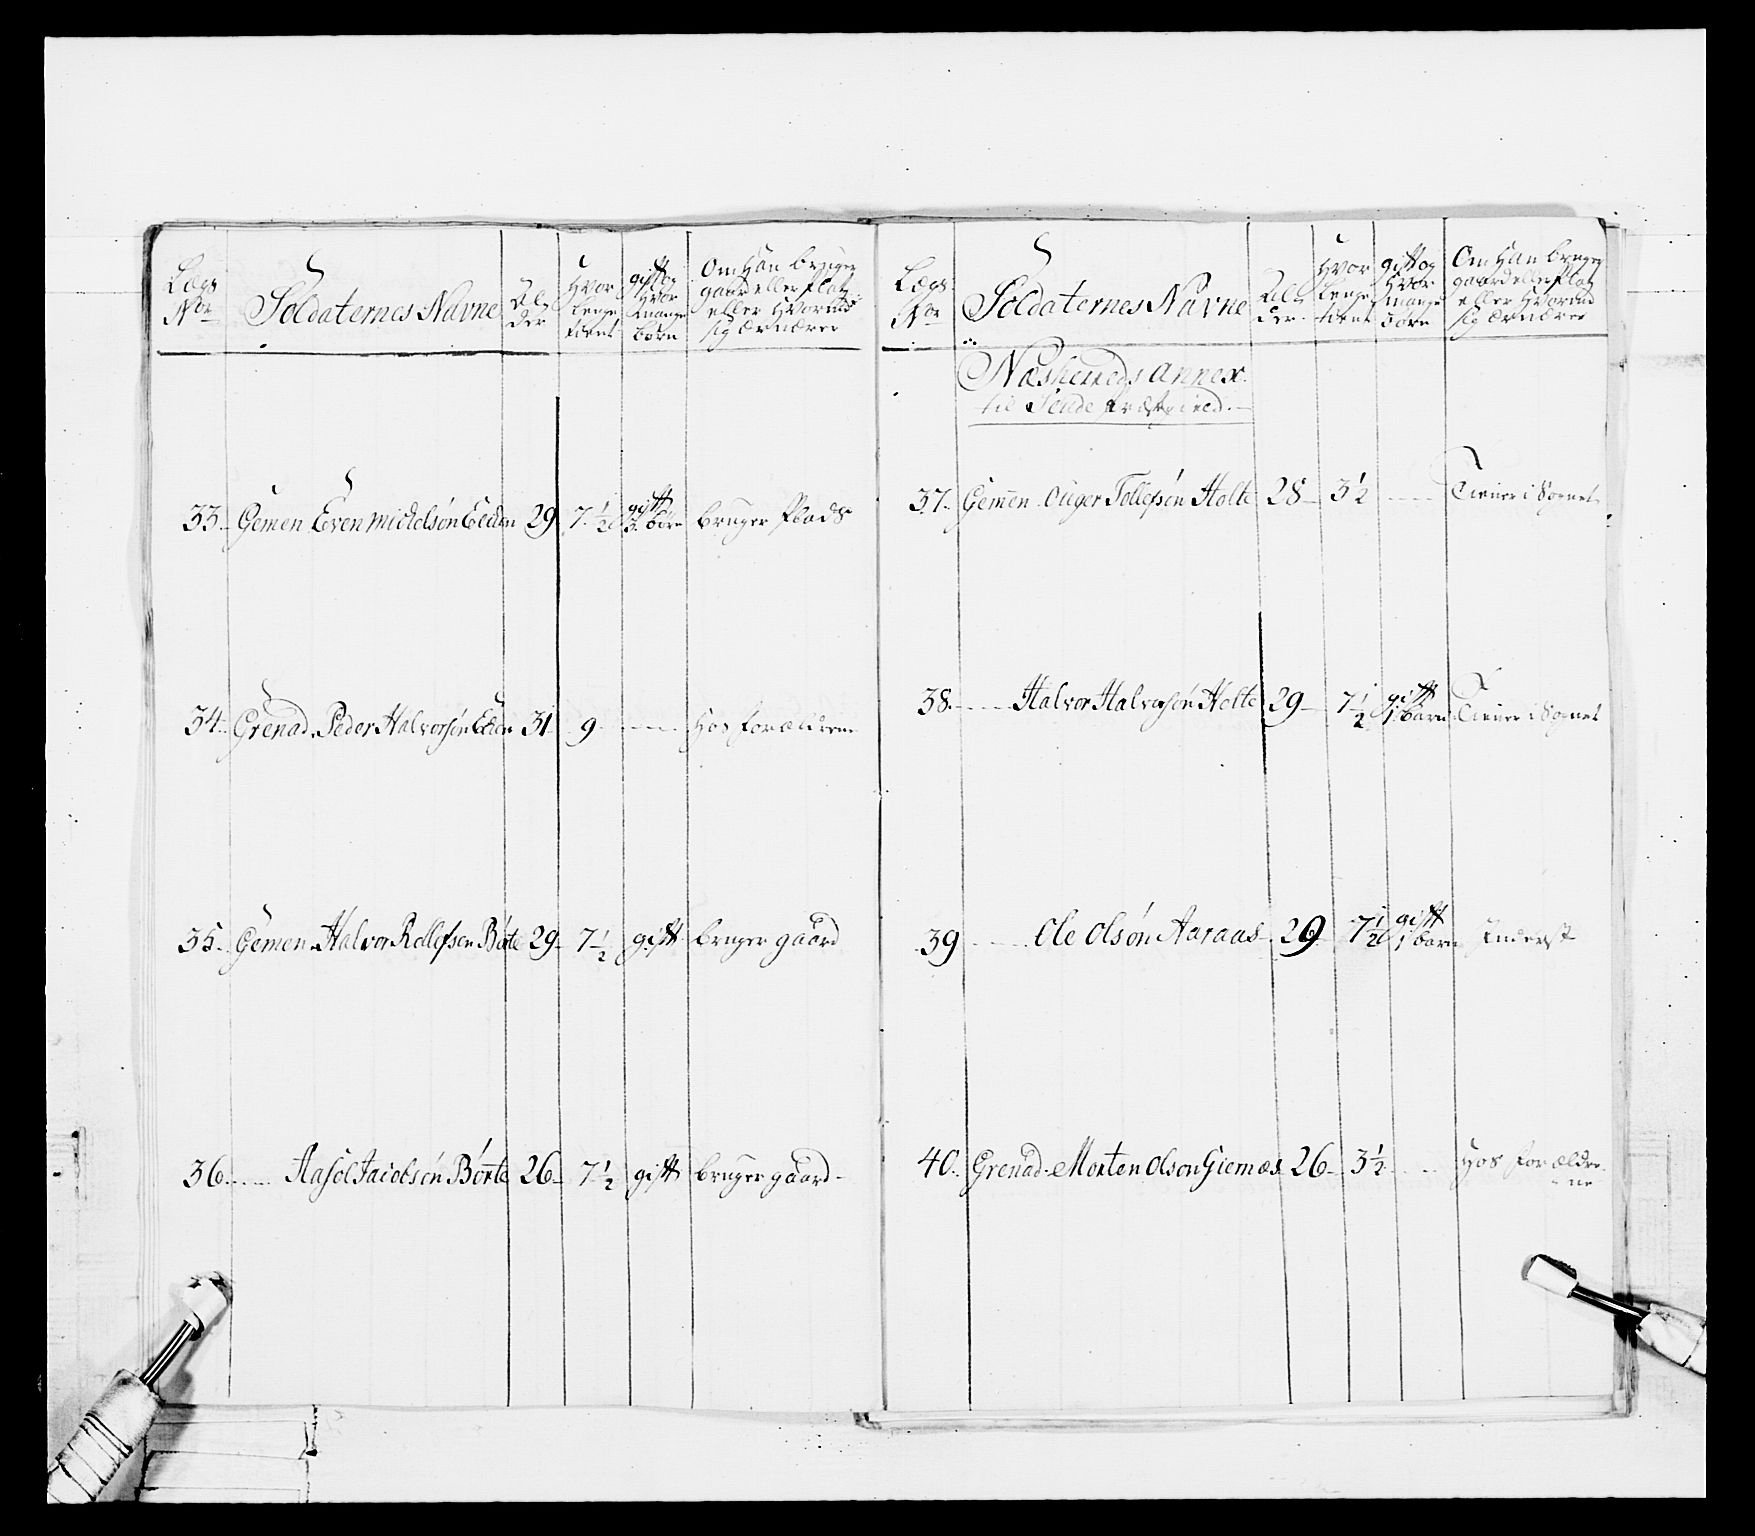 Lægs
No.
Soldaternes Navne
Al-
der
Hvor
lenge
tient
gift og
Hvor
mange
børn
Om Han bruger
gaard eller Plads
eller Hvormed
sig ernærer
33. Gemen Even Eden 29 7 1/2 gift 3. børn bruger Plads
34. Grenad. Peder Halvorsøn Eden 31 9 Hos Forældrene
35. Gemen Halvor Rollefsen Børte 29 7 1/2 gift bruger gaard
36. Aasol Jacobsøn Børte 26 7 1/2 gift bruger gaard
Lægs
No.
Soldaternes Navne
Al-
der
Hvor
lenge
tient
gift og
Hvor
mange
børn
Om Han bruger
gaard eller Plads
eller Hvormed
sig ernærer
Næsherreds Annex
til Præstegield.
37. Gemen Ouger Tollefsøn Holte 28 3 1/2 Tiener i Sognet
38. Halvor Halvorsøn Holte 29 7 1/2 gift 1 barn Tiener i Sognet
39 Ole Olsøn Aaraas 29 7 1/2 gift 1 barn Inderst
40. Grenad. Morten Olson 26 3 1/2 Hos Forældre-
ne